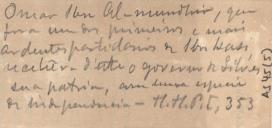 Omar Ibn Al-mundhir, que
fora um dos primeiros e mais
ardentes partidarios de Ibn Kasi
recebera d'este o governo de Silves
sua patria, com uma especie
de independencia — H. H. P. I, 353
AS 45 (5)